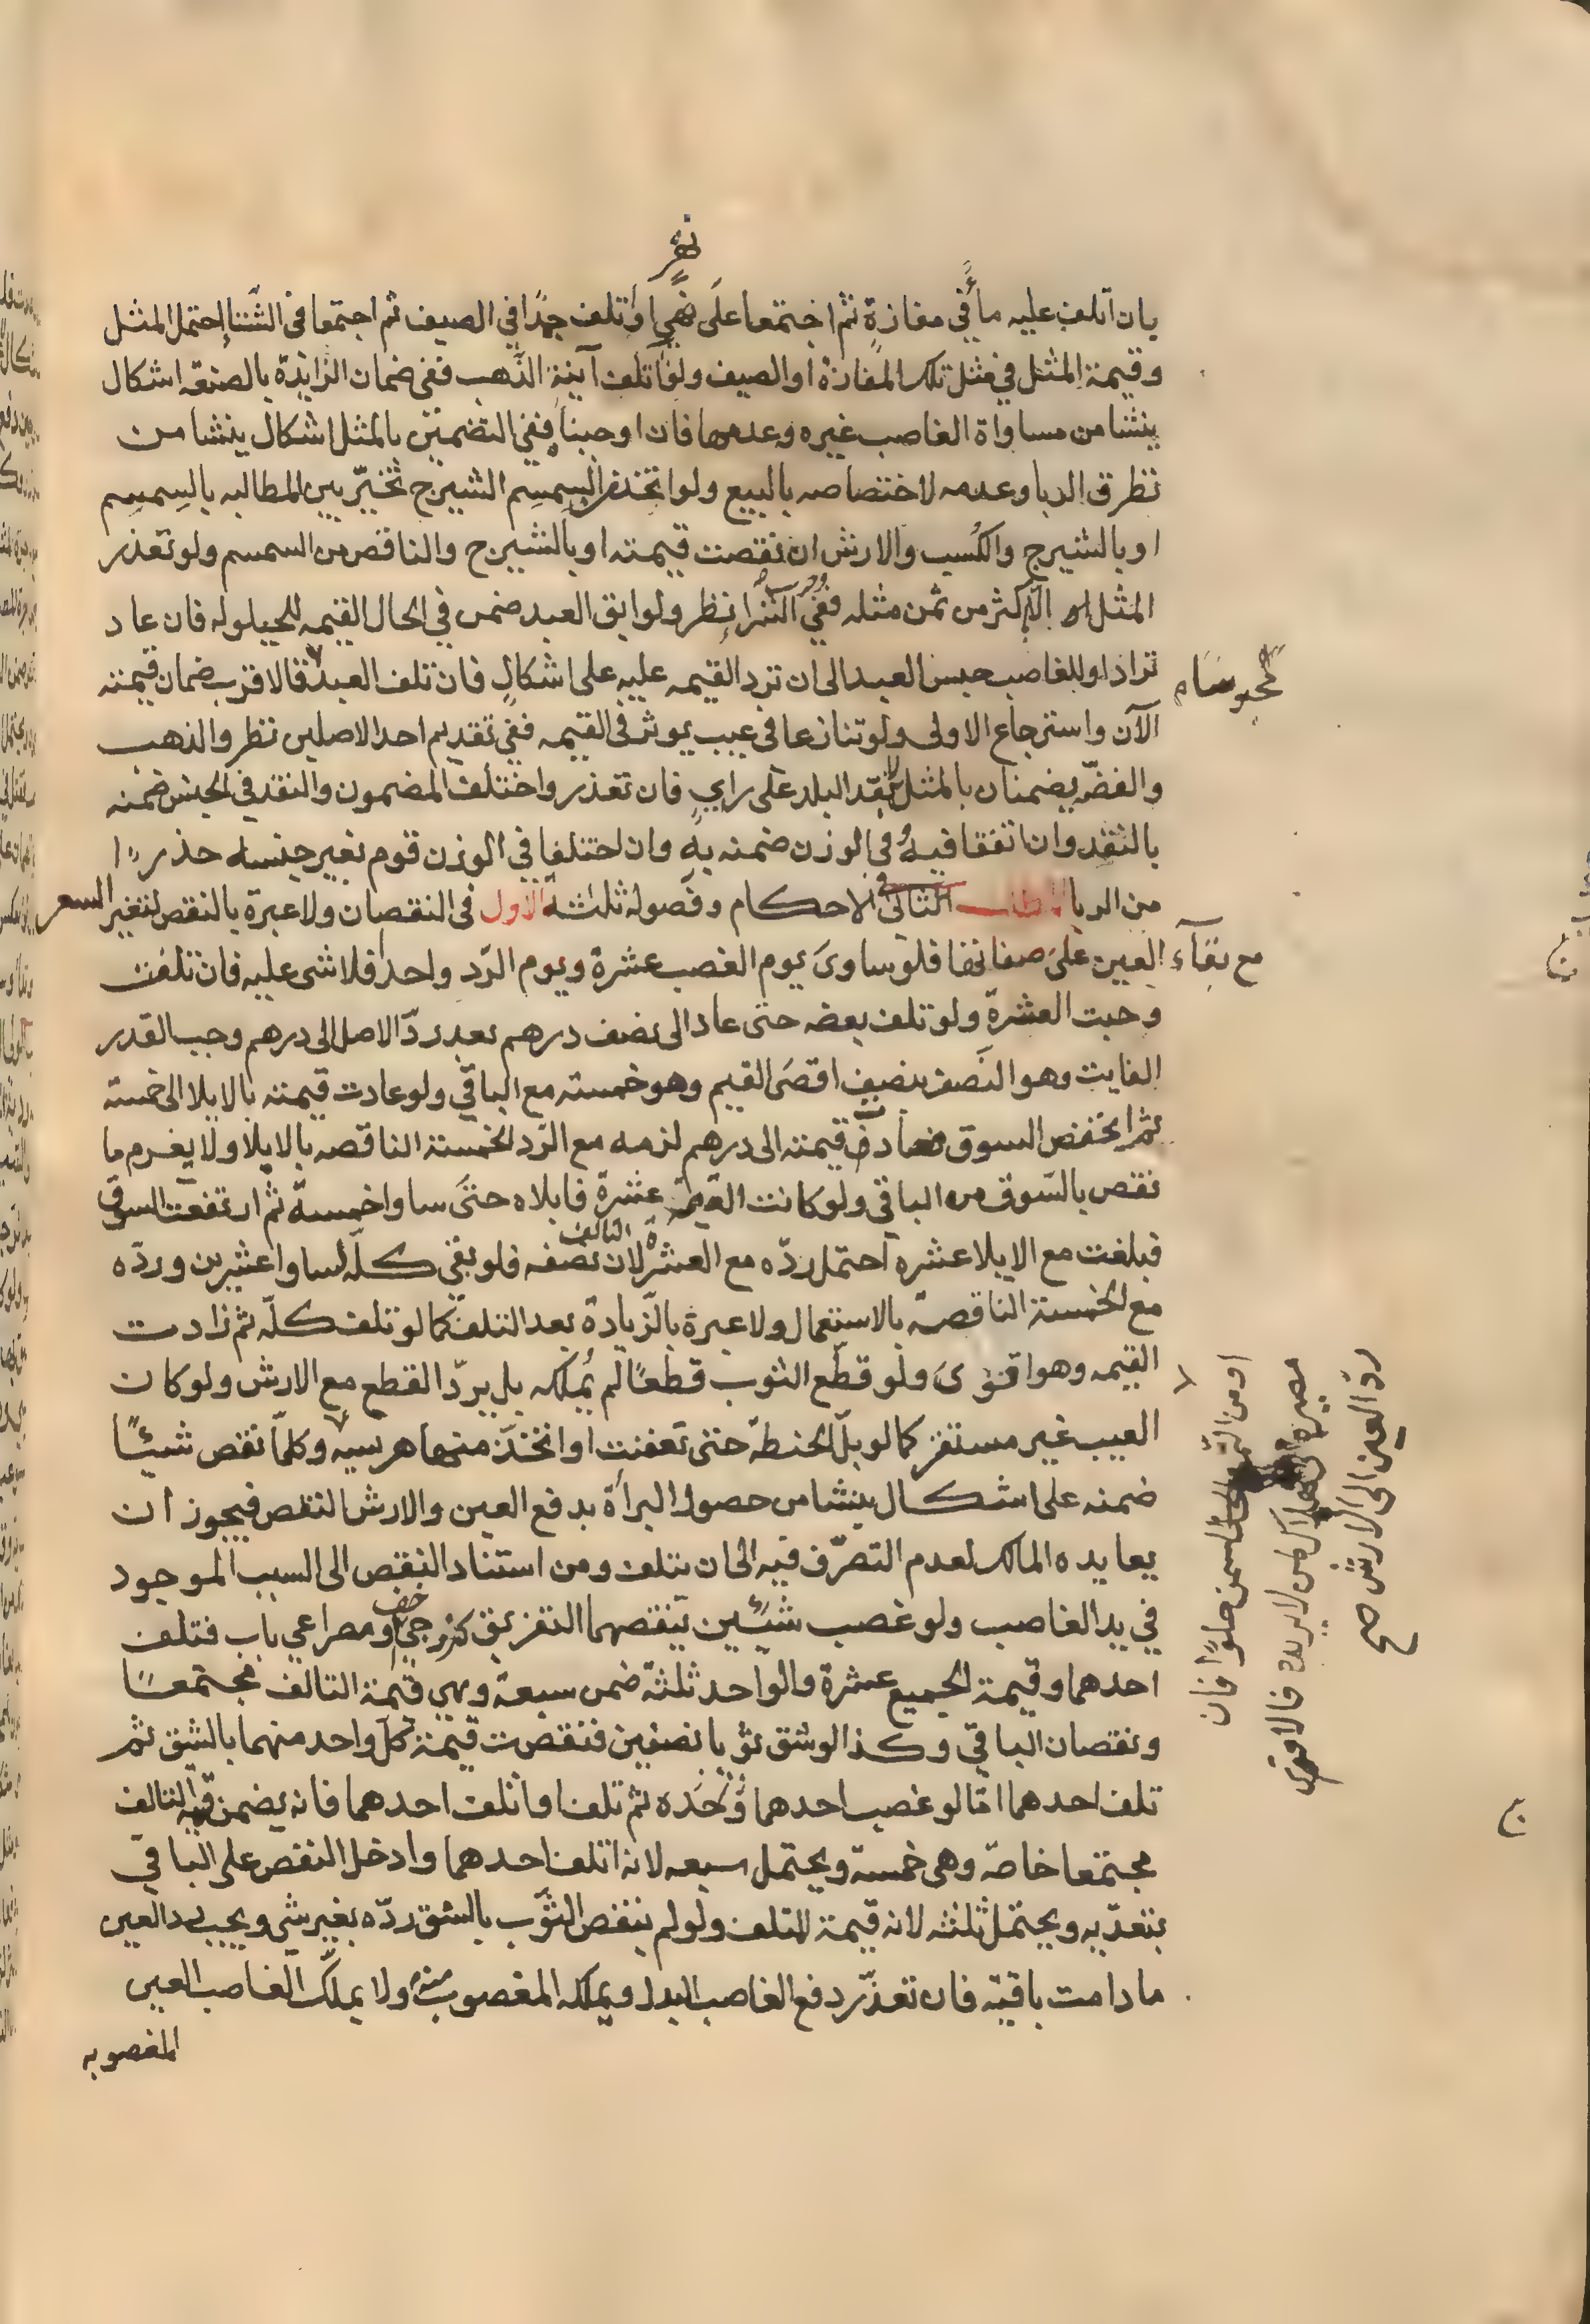 نهر
بان اتلف عليه ماء في مفازة ثم اجتمعا على نهر او اتلف جمدا في الصيف ثم اجتمعا في الشتاء احتمل المثل
وقيمة المثل في مثل تلك المفازة او الصيف ولو اتلف آنية الذهب ففي ضمان الزايدة بالصنعه اشكال
ينشا من مساواة الغاصب غيره وعدمها فان اوجبناه ففي التضمين بالمثل اشكال ينشا من
تطرق الربا وعدمه لاختصاصه بالبيع ولو اتخذ من السمسم الشيرج تخير بين المطالبه بالسمسم
او بالشيرج والكسب والارش ان نقصت قيمته او بالشيرج والناقص من السمسم ولو تعذر
المثل الا باكثر من ثمن مثله ففي وجوب الشراء نظر ولو ابق العبد ضمن في الحال القيمه للحيلوله فان عاد
ترادا وللغاصب حبس العبد الى ان ترد القيمه عليه على اشكال فان تلف العبد محبوسا فالاقرب ضمان قيمته
الآن واسترجاع الاولى ولو تنازعا في عيب يوثر في القيمه ففي تقديم احد الاصلين نظر والذهب
والفضه يضمنان بالمثل لا بنقد البلد على راي فان تعذر واختلف المضمون والنقد في الجنس ضمنه
بالنقد وان اتفقا فيه وفي الوزن ضمنه به وان اختلفا في الوزن قوم بغير جنسه حذرا
من الربا المطلب الثاني في الاحكام وفصوله ثلثة الاول في النقصان ولا عبرة بالنقص لتغير السعر
مع بقاء العين على صفاتها فلو ساوى يوم الغصب عشرة ويوم الرد واحدا فلا شى عليه فان تلفت
وجبت العشرة ولو تلف بعضه حتى عاد الى نصف درهم بعد رد الاصل الى درهم وجب القدر
الفايت وهو النصف بنصف اقصى القيم وهو خمسته مع الباقي ولو عادت قيمته بالابلا الى خمسة
ثم انخفض السوق فعادت قيمته الى درهم لزمه مع الرد الخمسة الناقصه بالابلا ولا يغرم ما
نقص بالسوق من الباقي ولو كانت القيمة عشرة فابلاه حتى ساوا خمسة ثم ارتفعت السوق
فبلغت مع الابلا عشرة احتمل رده مع العشرة لان التالف نصفه فلو بقي كله لساوا عشرين ورده
مع الخمسة الناقصة بالاستعمال ولا عبرة بالزيادة بعد التلف كما لو تلف كله ثم زادت
القيمه وهو اقوى ولو قطع الثوب قطعا لم يملكه بل يرد القطع مع الارش ولو كان
العيب غير مستقر كما لو بل الحنطة حتى تعفنت او اتخذ منها هريسه وكلما نقص شيئا
ضمنه على اشكال ينشا من حصول البرأة بدفع العين والارش النقص فيجوز ان
يعايده المالك لعدم التصرف فيه الى ان تتلف ومن استناد النقص الى السبب الموجود
في يد الغاصب ولو غصب شيئين تنقصهما التفريق كزوجي خف او مصراعي باب فتلف
احدهما وقيمة الجميع عشرة والواحد ثلثة ضمن سبعة وهي قيمة التالف مجتمعا
ونقصان الباقي وكذا لو شق ثوبا نصفين فنقصت قيمة كل واحد منهما بالشق ثم
تلف احدهما اما لو غصب احدهما وحده ثم تلف او اتلف احدهما فانه يضمن قيمة التالف
مجتمعا خاصة وهى خمسة ويحتمل سبعه لانه اتلف احدهما وادخل النقص على الباقي
بتعديه ويحتمل ثلثه لانه قيمة المتلف ولو لم ينقص الثوب بالشق رده بغير شي ويجب رد العين
ما دامت باقية فان تعذر دفع الغاصب البدل ويملكه المغصوب منه ولا يملك الغاصب العين
المغصوبه
او من التمر والسمن حلوا فان
مصيره الى الهلاك لمن لا يريده فالاقوى
رد العين الى الارش صح